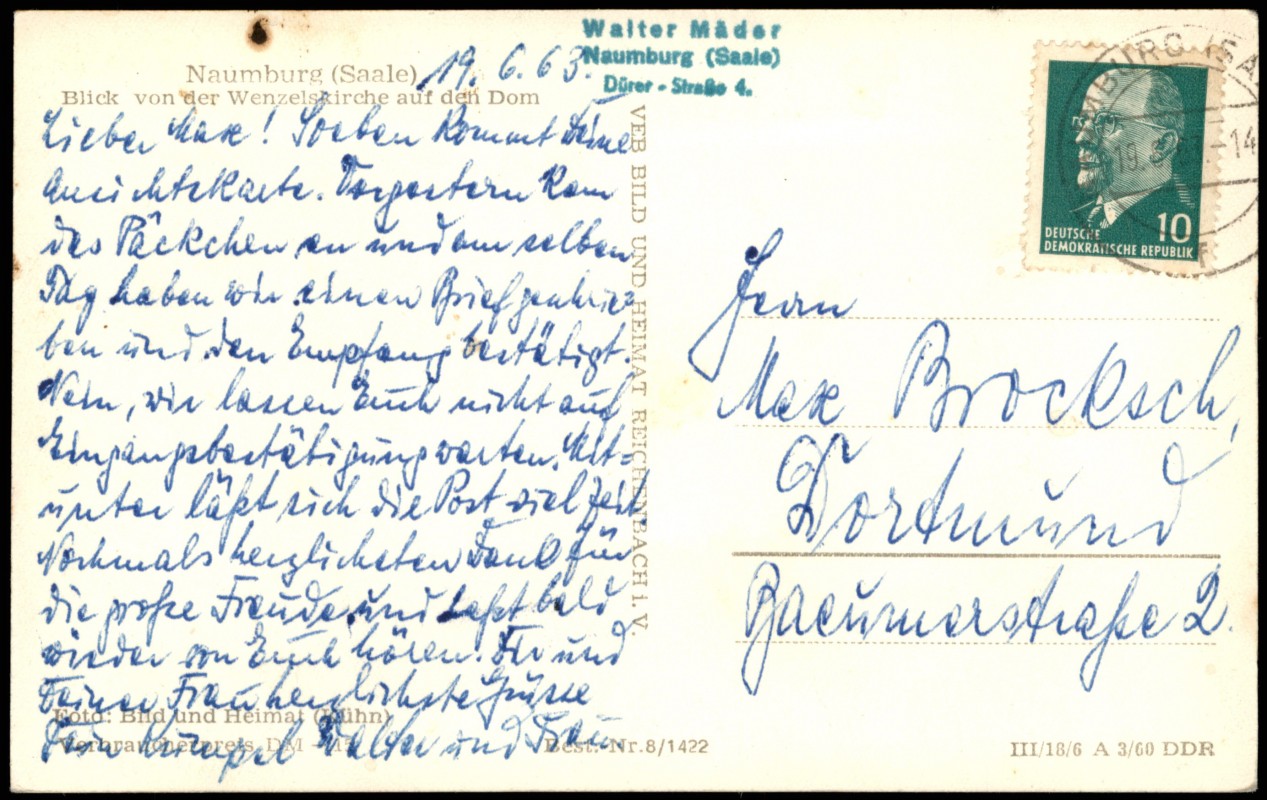 Walter Mäder
Naumburg (Saale)
Dürer-Straße 4.
Naumburg (Saale)
19. 6. 63.
Blick von der Wenzelskirche auf den Dom
Lieber Max! Soeben kommt Deine
Ansichtskarte. Vorgestern kam
das Päckchen an und am selben
Tag haben wir einen Brief geschrie=
ben und den Empfang bestätigt.
Nein, wir lassen Euch nicht auf
Eingangsbestätigung warten. Mit=
unter läßt sich die Post viel Zeit.
Nochmals herzlichsten Dank für
die große Freude und laßt bald
wieder von Euch hören. Dir und
Deiner Frau herzlichste Grüsse
Dein Kumpel Walter und Frau
Foto: Bild und Heimat (Kühn)
Verbraucherpreis DM
Best.-Nr. 8/1422
VEB BILD UND HEIMAT REICHENBACH i. V.
10
DEUTSCHE
DEMOKRATISCHE REPUBLIK
Herrn
Max Brocksch,
Dortmund
Baeumerstraße 2.
III/18/6 A 3/60 DDR